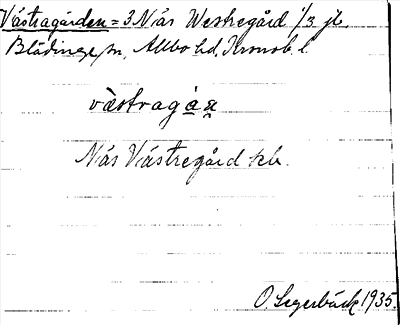 Västragården = 3 Näs Westregård 1/3 jb.
Blädinge sn, Allbo hd. Kronob. l.
vȁstragá̱ṉ
Näs Västregård kb.
O. Segerbäck 1935.